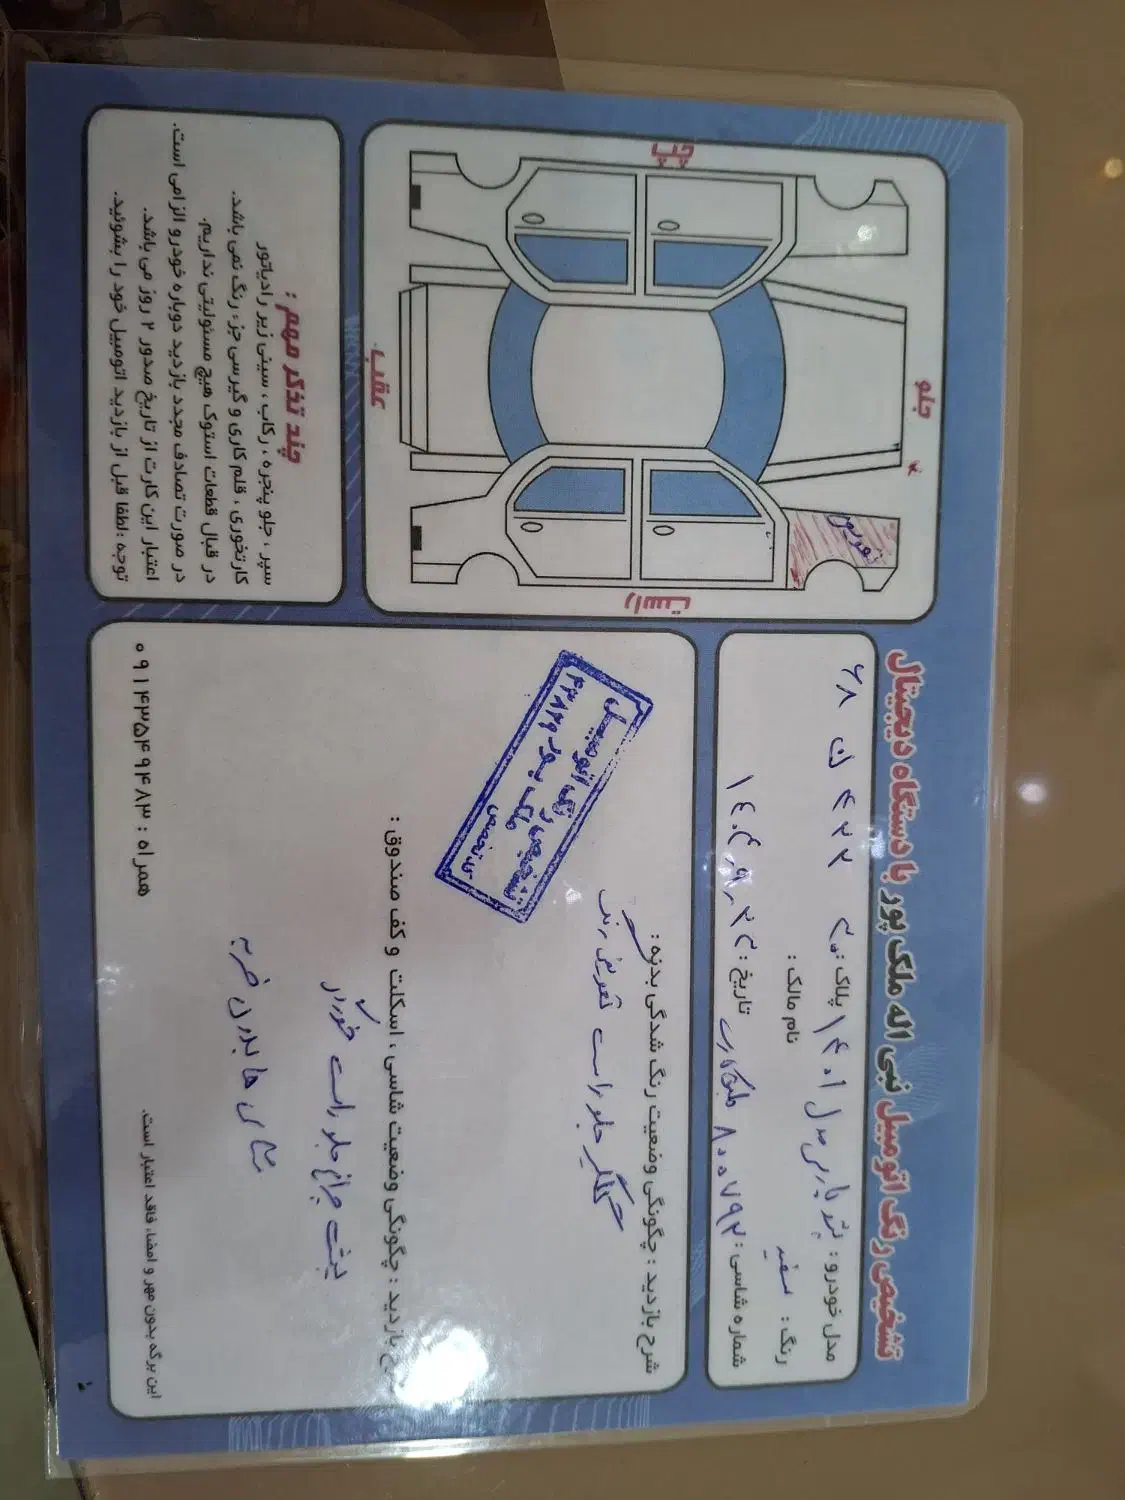 تشخیص رنگ اتومبیل نبی اله ملک پور با دستگاه دیجیتال
مدل خودرو: پژو پارس مدل ۱۴۰۱ پلاک:
رنگ: سفید نام مالک:
شماره شاسی: ۸۰۰۷۹۲ تاریخ:
جلو
عقب
چپ
راست
تعویض
شرح بازدید: چگونگی وضعیت رنگ شدگی بدنه:
گلگیر جلو راست تعویض رنگ
تشخیص رنگ اتومبیل
ملک پور
شرح بازدید: چگونگی وضعیت شاسی، اسکلت و کف صندوق:
پشت چراغ جلو راست خوردار
شاسی ها بدون ضربه
این برگه بدون مهر و امضاء فاقد اعتبار است.
همراه: ۰۹۱۴۳۵۴۹۴۸۳
چند تذکر مهم:
سپر، جلو پنجره، رکاب، سینی زیر رادیاتور
کارتخوری، قلم کاری و گیرسی جزء رنگ نمی باشد.
در قبال قطعات استوک هیچ مسئولیتی نداریم.
در صورت تصادف مجدد بازدید دوباره خودرو الزامی است.
اعتبار این کارت از تاریخ صدور ۲ روز می باشد.
توجه: لطفا قبل از بازدید اتومبیل خود را بشوئید.